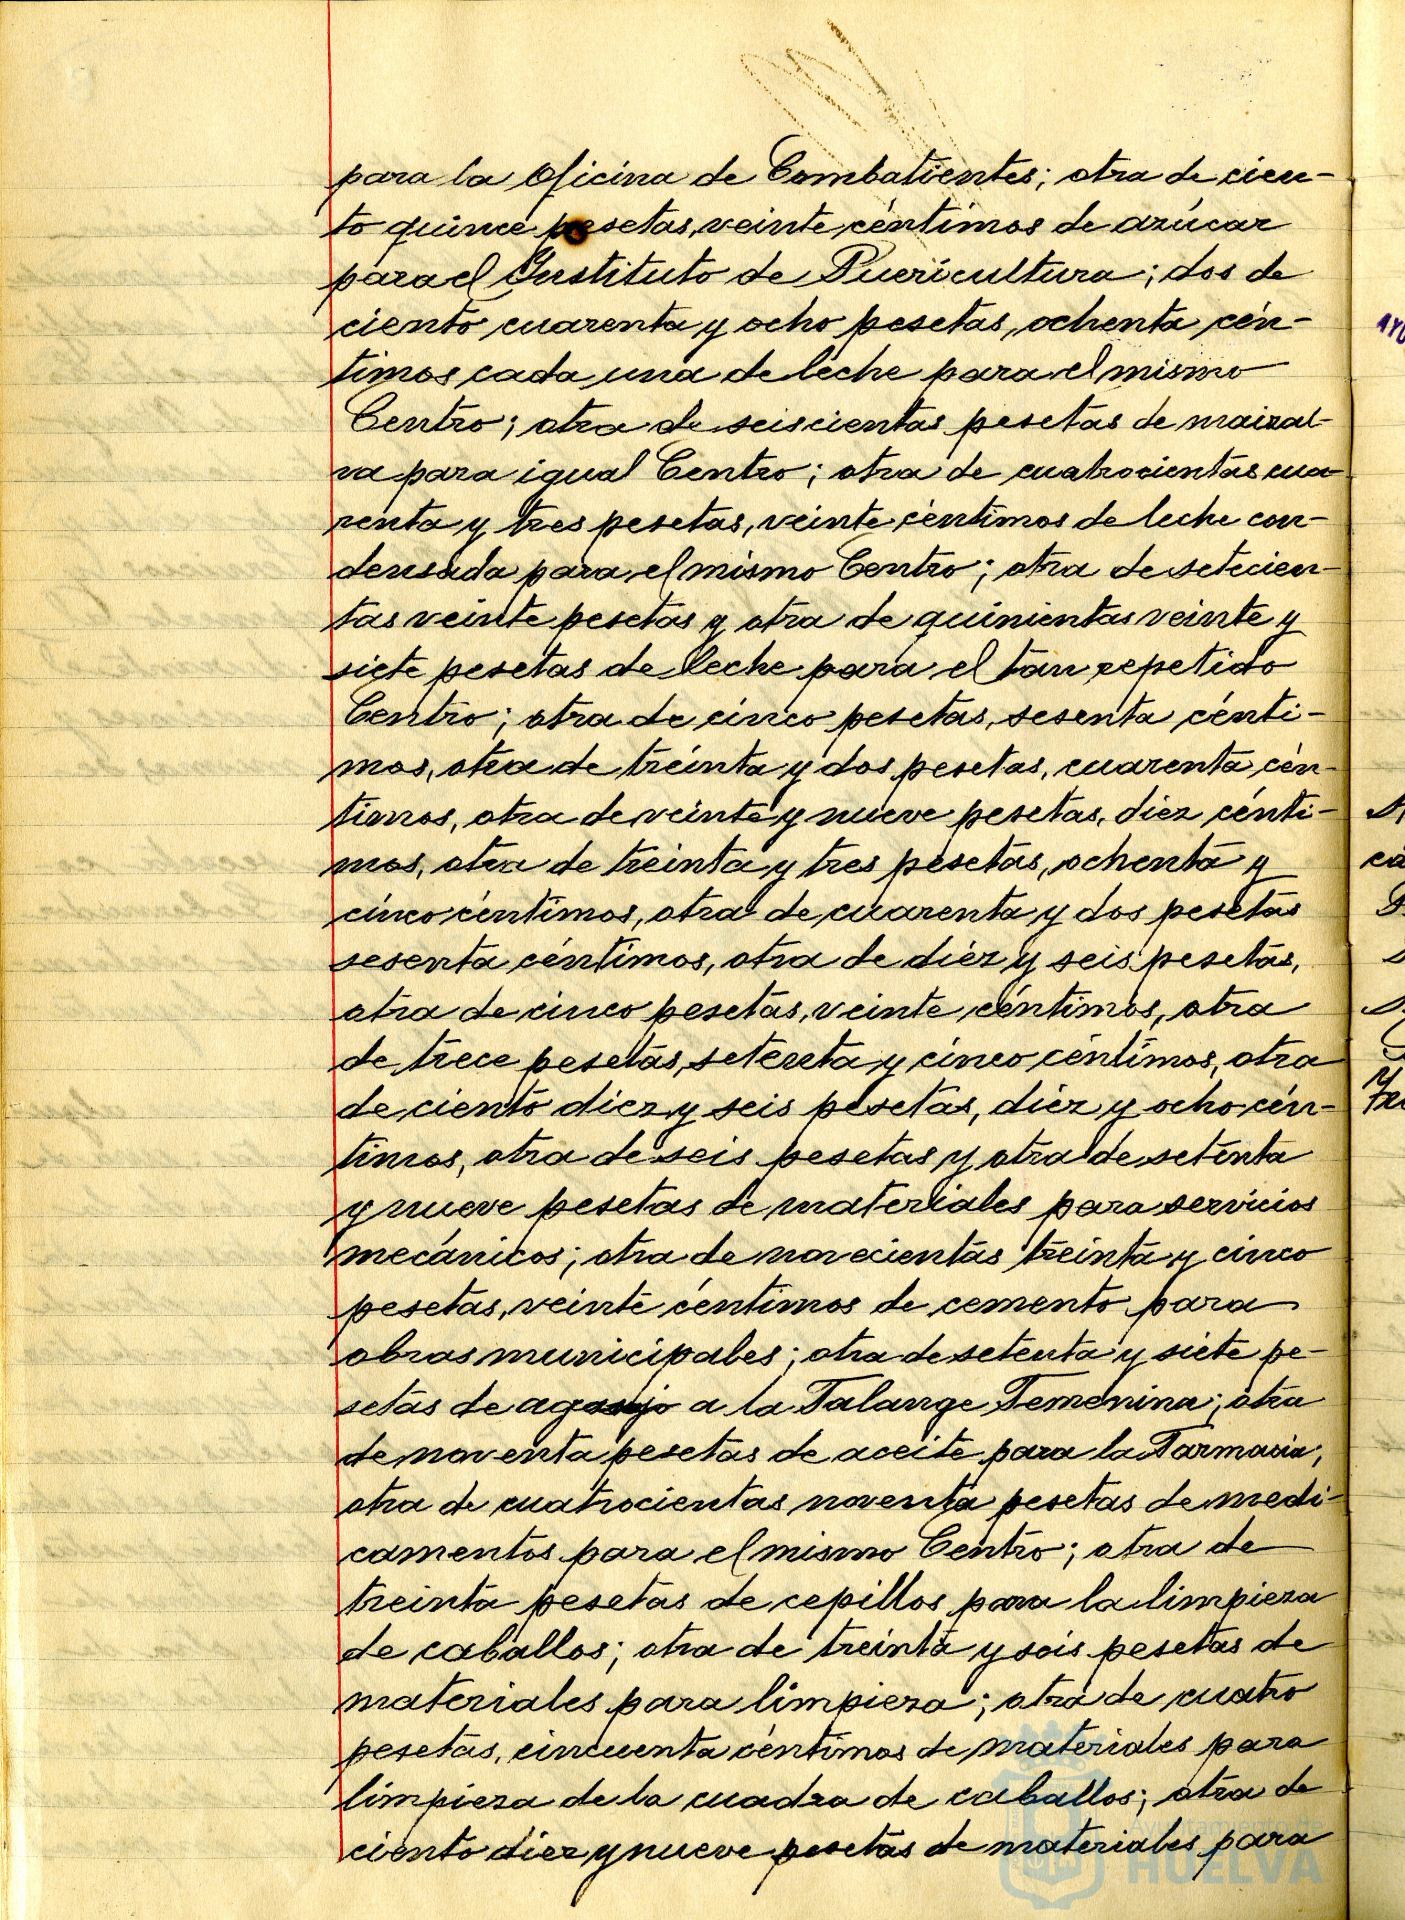 para la Oficina de Combatientes; otra de cien-
to quince pesetas, veinte céntimos de azúcar
para el Instituto de Puericultura; dos de
ciento cuarenta y ocho pesetas, ochenta cén-
timos cada una de leche para el mismo
Centro; otra de seiscientas pesetas de maizal-
va para igual Centro; otra de cuatrocientas cua
renta y tres pesetas, veinte céntimos de leche con-
densada para el mismo Centro; otra de setecien-
tas veinte pesetas y otra de quinientas veinte y
siete pesetas de leche para el tan repetido
Centro; otra de cinco pesetas, sesenta cénti-
mos, otra de treinta y dos pesetas, cuarenta cén-
timos, otra de veinte y nueve pesetas, diez cénti-
mos, otra de treinta y tres pesetas, ochenta y
cinco céntimos, otra de cuarenta y dos pesetas
sesenta céntimos, otra de diez y seis pesetas,
otra de cinco pesetas, veinte céntimos, otra
de trece pesetas, setenta y cinco céntimos, otra
de ciento diez y seis pesetas, diez y ocho cén-
timos, otra de seis pesetas y otra de setenta
y nueve pesetas de materiales para servicios
mecánicos; otra de novecientas treinta y cinco
pesetas, veinte céntimos de cemento para
obras municipales; otra de setenta y siete pe-
setas de agasajo a la Falange Femenina; otra
de noventa pesetas de aceite para la Farmacia;
otra de cuatrocientas noventa pesetas de medi-
camentos para el mismo Centro; otra de
treinta pesetas de cepillos para la limpieza
de caballos; otra de treinta y seis pesetas de
materiales para limpieza; otra de cuatro
pesetas, cincuenta céntimos de materiales para
limpieza de la cuadra de caballos; otra de
ciento diez y nueve pesetas de materiales para
Ayuntamiento de
HUELVA